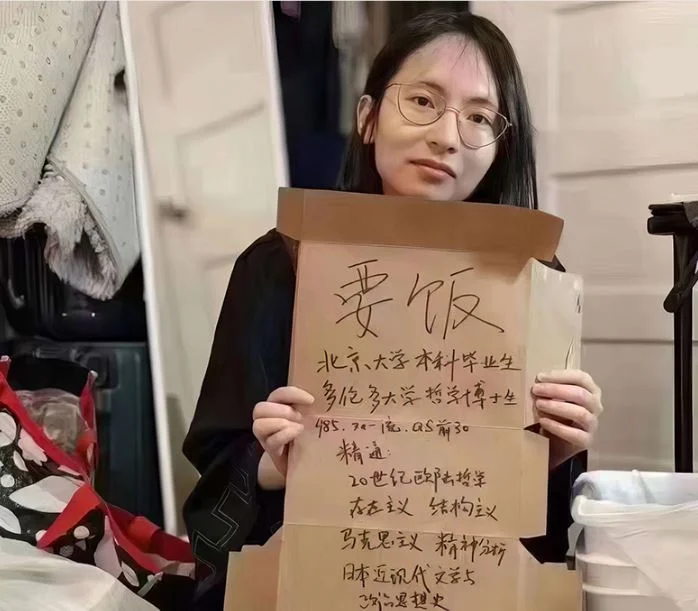 要饭
北京大学本科毕业生
多伦多大学哲学博士生
985.双一流.QS前30
精通:
20世纪欧陆哲学
存在主义 结构主义
马克思主义 精神分析
日本近现代文学与
政治思想史